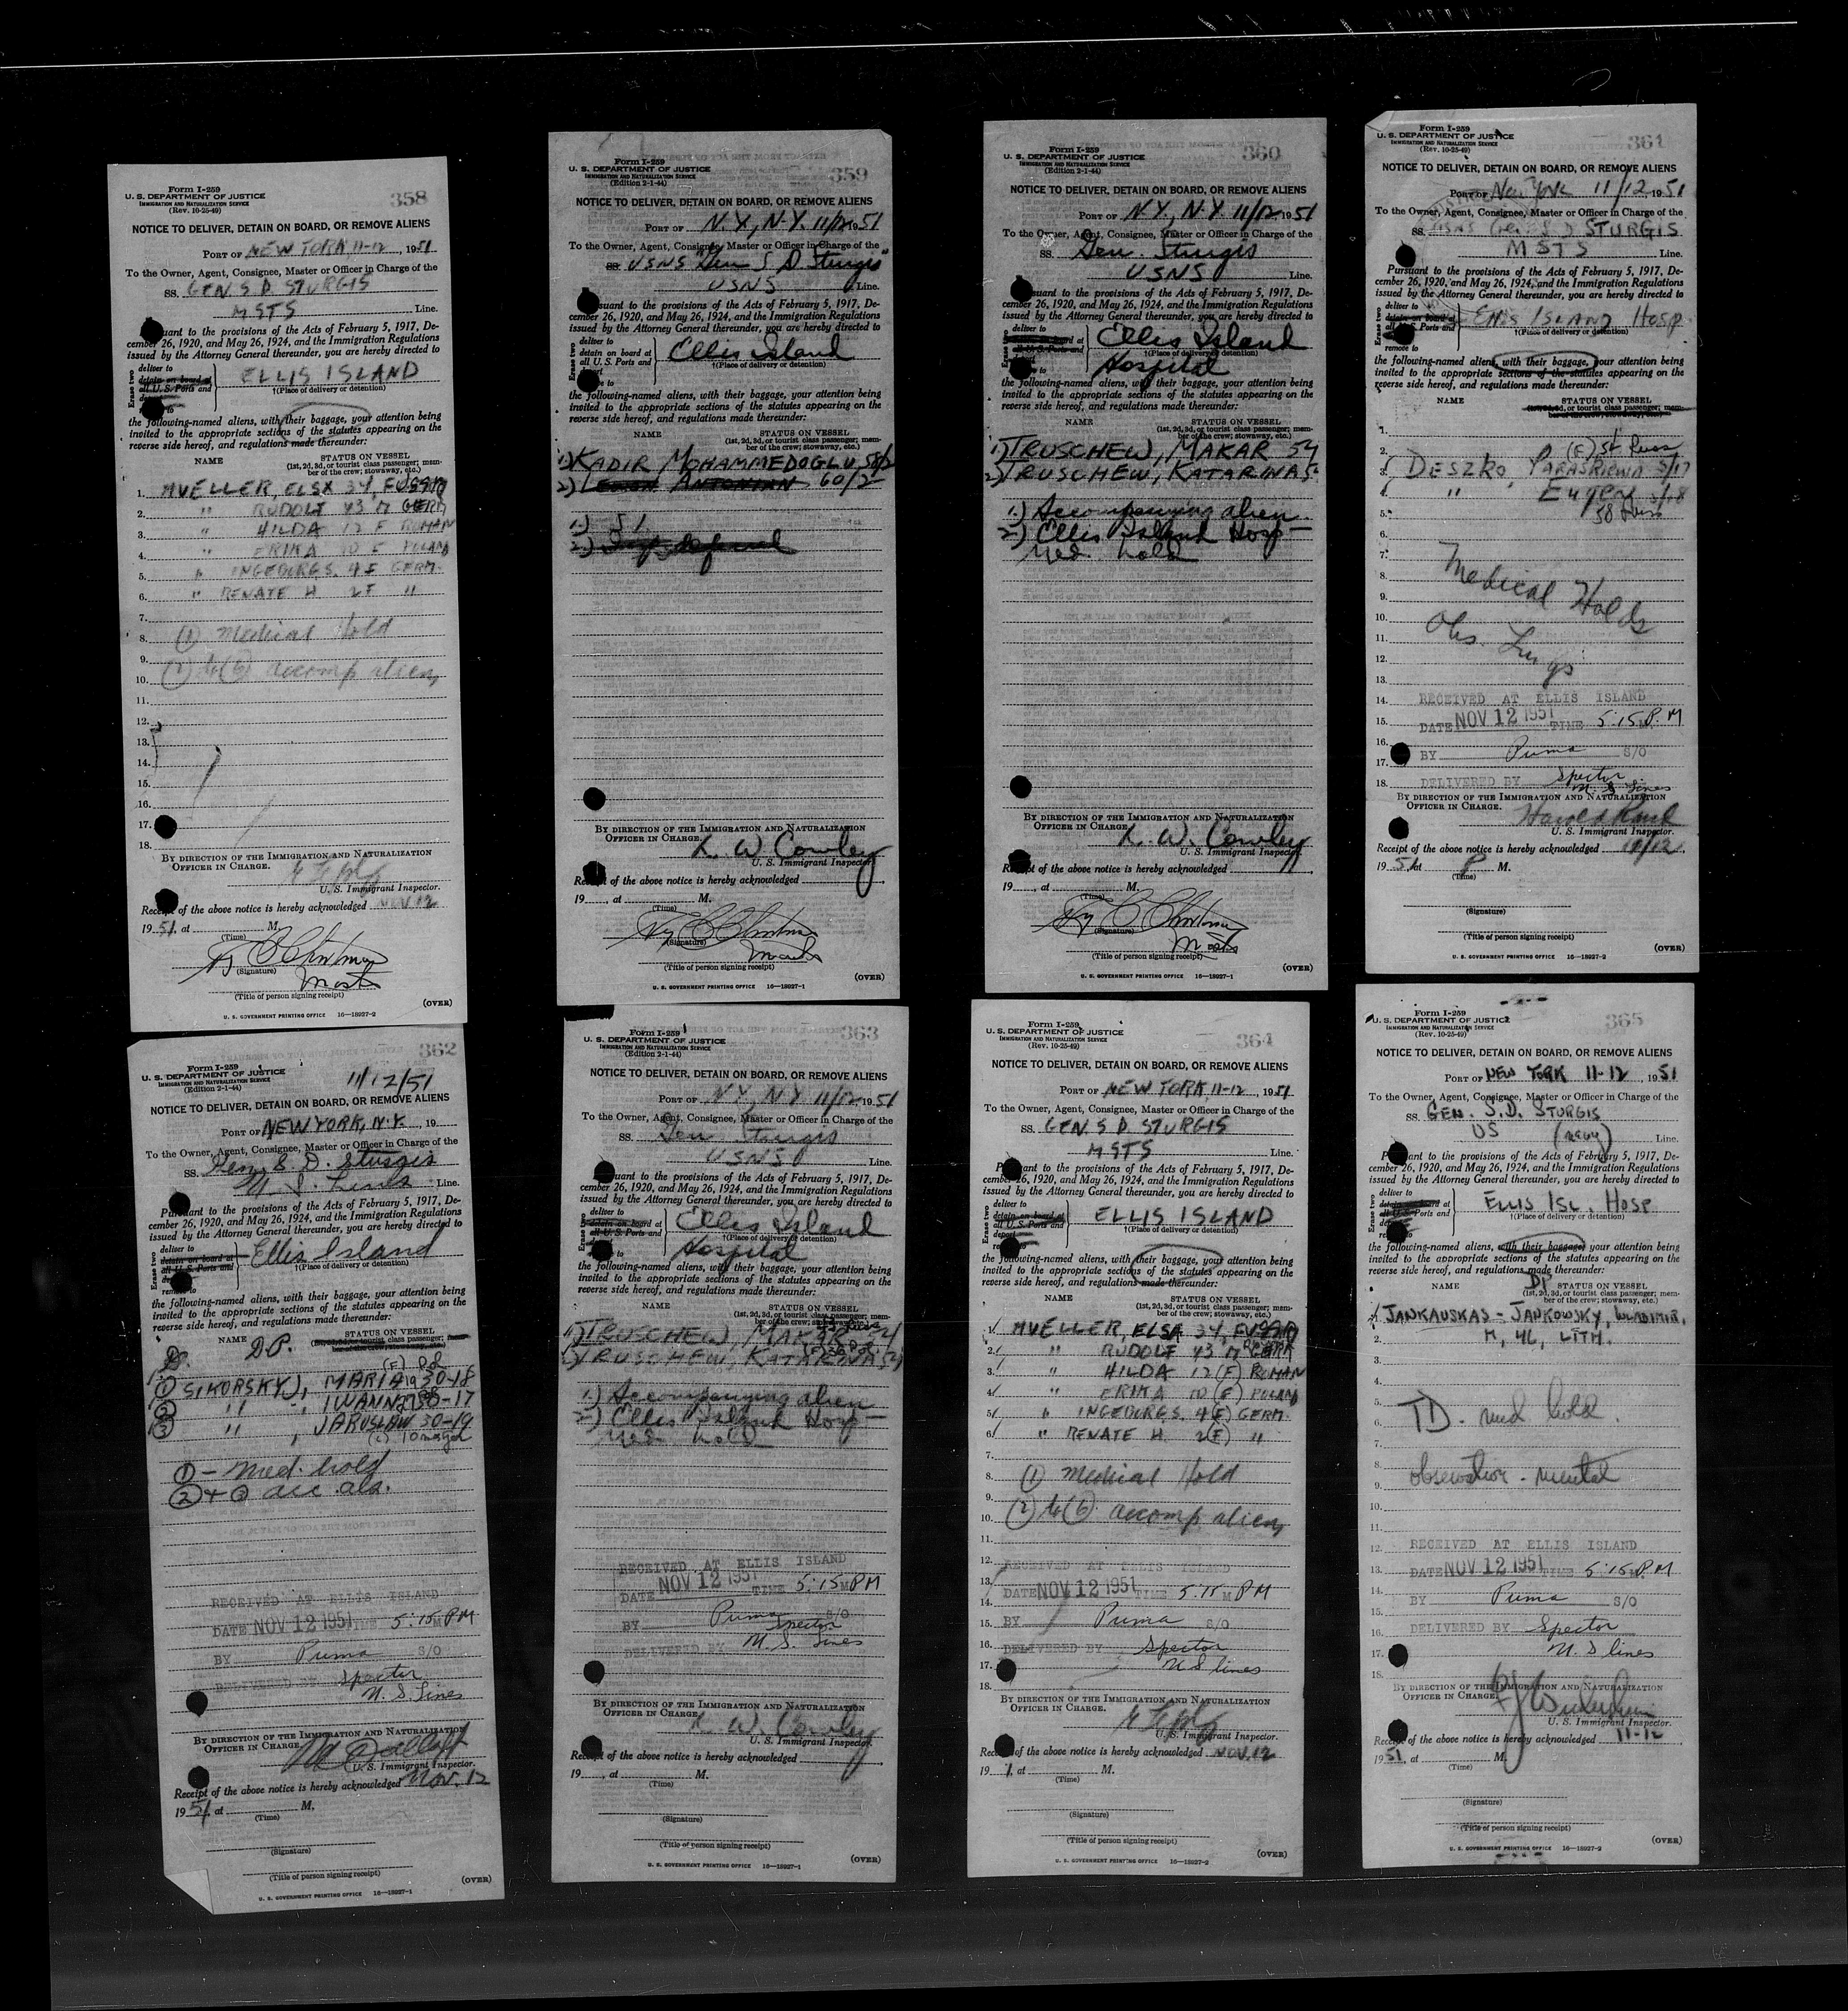 Form I-259
U. S. DEPARTMENT OF JUSTICE
IMMIGRATION AND NATURALIZATION SERVICE
(Rev. 10-25-49)
358
NOTICE TO DELIVER, DETAIN ON BOARD, OR REMOVE ALIENS
PORT OF NEW YORK, 11-12, 1951
To the Owner, Agent, Consignee, Master or Officer in Charge of the
SS. GEN. S D. STURGIS
MSTS Line.
uant to the provisions of the Acts of February 5, 1917, De-
cember 26, 1920, and May 26, 1924, and the Immigration Regulations
issued by the Attorney General thereunder, you are hereby directed to
Erase two
deliver to
detain on board at
all U. S. Ports and
to
ELLIS ISLAND
†(Place of delivery or detention)
the following-named aliens, with their baggage, your attention being
invited to the appropriate sections of the statutes appearing on the
reverse side hereof, and regulations made thereunder:
NAME STATUS ON VESSEL
(1st, 2d, 3d, or tourist class passenger; mem-
ber of the crew; stowaway, etc.)
1. MUELLER, ELSA 34, F
2. " RUDOLF 43 M GERM
3. " HILDA 12 F ROMAN
4. " ERIKA 10 F POLAND
5. " INGEBURG S. 4 F GERM.
6. " RENATE H 2 F "
7.
8. (1) Medical Hold
9.
10. to (6) accomp aliens
11.
12.
13.
14.
15.
16.
17.
18.
BY DIRECTION OF THE IMMIGRATION AND NATURALIZATION
OFFICER IN CHARGE.
U. S. Immigrant Inspector.
Receipt of the above notice is hereby acknowledged NOV. 12
1951, at M.
(Time)
(Signature)
(Title of person signing receipt)
(OVER)
U. S. GOVERNMENT PRINTING OFFICE 16—18927-2
Form I-259
U. S. DEPARTMENT OF JUSTICE
IMMIGRATION AND NATURALIZATION SERVICE
(Edition 2-1-44)
359
NOTICE TO DELIVER, DETAIN ON BOARD, OR REMOVE ALIENS
PORT OF N.Y., N.Y. 11/12 1951
To the Owner, Agent, Consignee, Master or Officer in Charge of the
SS. USNS "Gen S D Sturgis"
USNS Line.
suant to the provisions of the Acts of February 5, 1917, De-
cember 26, 1920, and May 26, 1924, and the Immigration Regulations
issued by the Attorney General thereunder, you are hereby directed to
Erase two
deliver to
detain on board at
all U. S. Ports and
to
Ellis Island
†(Place of delivery or detention)
the following-named aliens, with their baggage, your attention being
invited to the appropriate sections of the statutes appearing on the
reverse side hereof, and regulations made thereunder:
NAME STATUS ON VESSEL
(1st, 2d, 3d, or tourist class passenger; mem-
ber of the crew; stowaway, etc.)
1.) KADIR MOHAMMEDOGLU
2.) ANTONIAN 60/2
1.) S I.
2.)
BY DIRECTION OF THE IMMIGRATION AND NATURALIZATION
OFFICER IN CHARGE.
L. W. Cowley
U. S. Immigrant Inspector.
Receipt of the above notice is hereby acknowledged
19 , at M.
(Time)
(Signature)
(Title of person signing receipt)
(OVER)
U. S. GOVERNMENT PRINTING OFFICE 16—18927-1
Form I-259
U. S. DEPARTMENT OF JUSTICE
IMMIGRATION AND NATURALIZATION SERVICE
(Edition 2-1-44)
360
NOTICE TO DELIVER, DETAIN ON BOARD, OR REMOVE ALIENS
PORT OF N.Y., N.Y. 11/12 1951
To the Owner, Agent, Consignee, Master or Officer in Charge of the
SS. Gen. Sturgis
USNS Line.
suant to the provisions of the Acts of February 5, 1917, De-
cember 26, 1920, and May 26, 1924, and the Immigration Regulations
issued by the Attorney General thereunder, you are hereby directed to
Erase two
deliver to
detain on board at
all U. S. Ports and
to
Ellis Island
†(Place of delivery or detention)
Hospital
the following-named aliens, with their baggage, your attention being
invited to the appropriate sections of the statutes appearing on the
reverse side hereof, and regulations made thereunder:
NAME STATUS ON VESSEL
(1st, 2d, 3d, or tourist class passenger; mem-
ber of the crew; stowaway, etc.)
1.) TRUSCHEW, MAKAR 54
2.) TRUSCHEW, KATARINA
1.) Accompanying alien
2.) Ellis Island Hosp —
Med. hold
BY DIRECTION OF THE IMMIGRATION AND NATURALIZATION
OFFICER IN CHARGE.
L. W. Cowley
U. S. Immigrant Inspector.
Receipt of the above notice is hereby acknowledged
19 , at M.
(Time)
(Signature)
(Title of person signing receipt)
(OVER)
U. S. GOVERNMENT PRINTING OFFICE 16—18927-1
Form I-259
U. S. DEPARTMENT OF JUSTICE
IMMIGRATION AND NATURALIZATION SERVICE
(Rev. 10-25-49)
361
NOTICE TO DELIVER, DETAIN ON BOARD, OR REMOVE ALIENS
PORT OF New York 11/12 1951
To the Owner, Agent, Consignee, Master or Officer in Charge of the
SS. USNS Gen. S D STURGIS
MSTS Line.
Pursuant to the provisions of the Acts of February 5, 1917, De-
cember 26, 1920, and May 26, 1924, and the Immigration Regulations
issued by the Attorney General thereunder, you are hereby directed to
Erase two
deliver to
detain on board at
all U. S. Ports and
remove to
Ellis Island Hosp.
†(Place of delivery or detention)
the following-named aliens, with their baggage, your attention being
invited to the appropriate sections of the statutes appearing on the
reverse side hereof, and regulations made thereunder:
NAME STATUS ON VESSEL
(1st, 2d, 3d, or tourist class passenger; mem-
ber of the crew; stowaway, etc.)
1.
2.
3. DESZKO,
4. "
5.
6.
7.
8. Medical Holds
9.
10.
11. Obs. Lungs
12.
13.
14. RECEIVED AT ELLIS ISLAND
15. DATE NOV 12 1951 TIME 5:15 P. M
16.
17. BY Puma S/O
18. DELIVERED BY Spector
Lines
BY DIRECTION OF THE IMMIGRATION AND NATURALIZATION
OFFICER IN CHARGE.
U. S. Immigrant Inspector.
Receipt of the above notice is hereby acknowledged 11/12,
1951, at P M.
(Time)
(Signature)
(Title of person signing receipt)
(OVER)
U. S. GOVERNMENT PRINTING OFFICE 16—18927-2
Form I-259
U. S. DEPARTMENT OF JUSTICE
IMMIGRATION AND NATURALIZATION SERVICE
(Edition 2-1-44)
362
11/12/51
NOTICE TO DELIVER, DETAIN ON BOARD, OR REMOVE ALIENS
PORT OF NEW YORK, N.Y. , 19
To the Owner, Agent, Consignee, Master or Officer in Charge of the
SS. Gen. S. D. Sturgis
Lines Line.
Pursuant to the provisions of the Acts of February 5, 1917, De-
cember 26, 1920, and May 26, 1924, and the Immigration Regulations
issued by the Attorney General thereunder, you are hereby directed to
Erase two
deliver to
detain on board at
all U. S. Ports and
remove to
Ellis Island
†(Place of delivery or detention)
the following-named aliens, with their baggage, your attention being
invited to the appropriate sections of the statutes appearing on the
reverse side hereof, and regulations made thereunder:
NAME D.P. STATUS ON VESSEL
① SIKORSKYJ, MARIA 30-18
② " , IWANNA 30-17
③ " , JAROSLAW 30-19
① - Med. hold
② + ③ acc als.
RECEIVED AT ELLIS ISLAND
DATE NOV 12 1951 TIME 5:15 PM
BY Puma S/O
DELIVERED BY Spector
U. S. Lines
BY DIRECTION OF THE IMMIGRATION AND NATURALIZATION
OFFICER IN CHARGE.
U. S. Immigrant Inspector.
Receipt of the above notice is hereby acknowledged Nov. 12
1951, at M.
(Time)
(Signature)
(Title of person signing receipt)
(OVER)
U. S. GOVERNMENT PRINTING OFFICE 16—18927-1
Form I-259
U. S. DEPARTMENT OF JUSTICE
IMMIGRATION AND NATURALIZATION SERVICE
(Edition 2-1-44)
363
NOTICE TO DELIVER, DETAIN ON BOARD, OR REMOVE ALIENS
PORT OF N.Y., N.Y. 11/12 1951
To the Owner, Agent, Consignee, Master or Officer in Charge of the
SS. Gen Sturgis
USNS Line.
suant to the provisions of the Acts of February 5, 1917, De-
cember 26, 1920, and May 26, 1924, and the Immigration Regulations
issued by the Attorney General thereunder, you are hereby directed to
Erase two
deliver to
detain on board at
all U. S. Ports and
to
Ellis Island
†(Place of delivery or detention)
Hospital
the following-named aliens, with their baggage, your attention being
invited to the appropriate sections of the statutes appearing on the
reverse side hereof, and regulations made thereunder:
NAME STATUS ON VESSEL
(1st, 2d, 3d, or tourist class passenger; mem-
ber of the crew; stowaway, etc.)
1.) TRUSCHEW, MAKAR 54
2.) TRUSCHEW, KATARINA 54
1.) Accompanying alien
2.) Ellis Island Hosp —
Med. hold
RECEIVED AT ELLIS ISLAND
DATE NOV 12 1951 TIME 5:15 PM
BY Puma S/O
DELIVERED BY Spector
U. S. Lines
BY DIRECTION OF THE IMMIGRATION AND NATURALIZATION
OFFICER IN CHARGE.
L. W. Cowley
U. S. Immigrant Inspector.
Receipt of the above notice is hereby acknowledged
19 , at M.
(Time)
(Signature)
(Title of person signing receipt)
(OVER)
U. S. GOVERNMENT PRINTING OFFICE 16—18927-1
Form I-259
U. S. DEPARTMENT OF JUSTICE
IMMIGRATION AND NATURALIZATION SERVICE
(Rev. 10-25-49)
364
NOTICE TO DELIVER, DETAIN ON BOARD, OR REMOVE ALIENS
PORT OF NEW YORK 11-12, 1951
To the Owner, Agent, Consignee, Master or Officer in Charge of the
SS. GEN. S D STURGIS
MSTS Line.
ant to the provisions of the Acts of February 5, 1917, De-
cember 26, 1920, and May 26, 1924, and the Immigration Regulations
issued by the Attorney General thereunder, you are hereby directed to
Erase two
deliver to
detain on board at
all U. S. Ports and
deport
to
ELLIS ISLAND
†(Place of delivery or detention)
the following-named aliens, with their baggage, your attention being
invited to the appropriate sections of the statutes appearing on the
reverse side hereof, and regulations made thereunder:
NAME STATUS ON VESSEL
(1st, 2d, 3d, or tourist class passenger; mem-
ber of the crew; stowaway, etc.)
1. MUELLER, ELSA 34, F
2. " RUDOLF 43 M GERM
3. " HILDA 12 (F) ROMAN
4. " ERIKA 10 (F) POLAND
5. " INGEBURG S. 4 (F) GERM.
6. " RENATE H. 2 (F) "
7.
8. (1) Medical Hold
9.
10. (2) to (6) accomp aliens
11.
12. RECEIVED AT ELLIS ISLAND
13. DATE NOV 12 1951 TIME 5:15 PM
14.
15. BY Puma S/O
16. DELIVERED BY Spector
17. U S lines
18.
BY DIRECTION OF THE IMMIGRATION AND NATURALIZATION
OFFICER IN CHARGE.
U. S. Immigrant Inspector.
Receipt of the above notice is hereby acknowledged NOV. 12
19 1, at M.
(Time)
(Signature)
(Title of person signing receipt)
(OVER)
U. S. GOVERNMENT PRINTING OFFICE 16—18927-2
Form I-259
U. S. DEPARTMENT OF JUSTICE
IMMIGRATION AND NATURALIZATION SERVICE
(Rev. 10-25-49)
365
NOTICE TO DELIVER, DETAIN ON BOARD, OR REMOVE ALIENS
PORT OF NEW YORK 11-12, 1951
To the Owner, Agent, Consignee, Master or Officer in Charge of the
SS. GEN. S.D. STURGIS
US (Navy) Line.
P ant to the provisions of the Acts of February 5, 1917, De-
cember 26, 1920, and May 26, 1924, and the Immigration Regulations
issued by the Attorney General thereunder, you are hereby directed to
Erase two
deliver to
detain on board at
all U. S. Ports and
to
ELLIS ISL. HOSP.
†(Place of delivery or detention)
the following-named aliens, with their baggage, your attention being
invited to the appropriate sections of the statutes appearing on the
reverse side hereof, and regulations made thereunder:
NAME DP STATUS ON VESSEL
(1st, 2d, 3d, or tourist class passenger; mem-
ber of the crew; stowaway, etc.)
1. JANKAUSKAS - JANKOWSKY, WLADIMIR.
2. M, 46, LITH.
3.
4.
5.
6. TD. med hold.
7.
8.
9. observation - mental
10.
11.
12. RECEIVED AT ELLIS ISLAND
13. DATE NOV 12 1951 TIME 5:15 PM
14. BY Puma S/O
15.
16. DELIVERED BY Spector
17. U. S lines
18.
BY DIRECTION OF THE IMMIGRATION AND NATURALIZATION
OFFICER IN CHARGE.
U. S. Immigrant Inspector.
Receipt of the above notice is hereby acknowledged 11-12
1951, at M.
(Time)
(Signature)
(Title of person signing receipt)
(OVER)
U. S. GOVERNMENT PRINTING OFFICE 16—18927-2